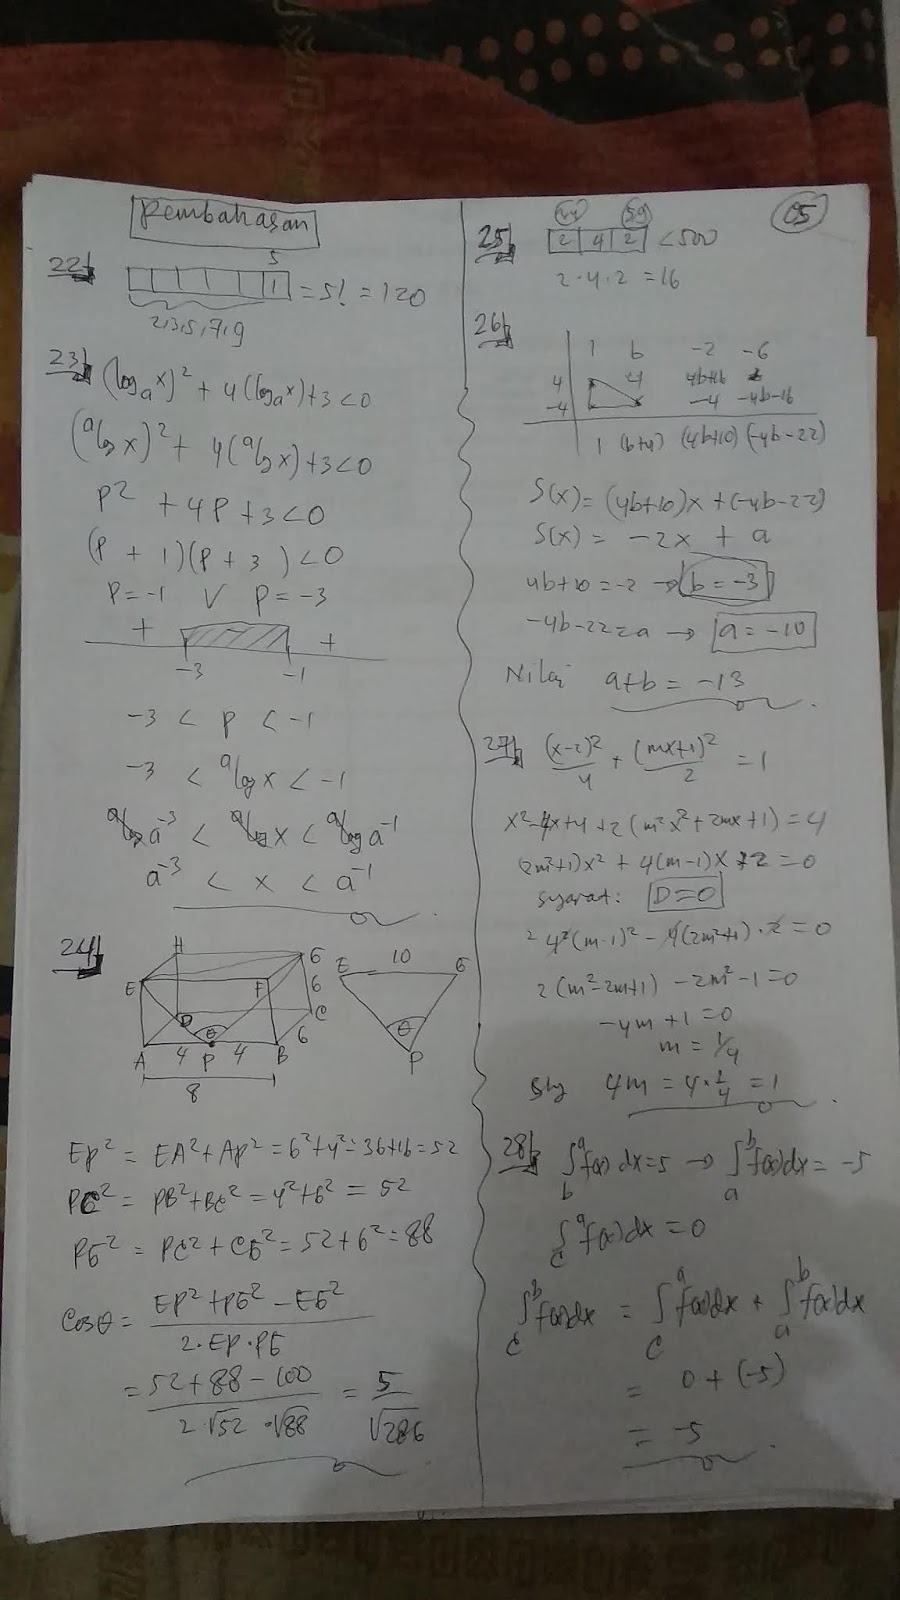 Pembahasan
05
22)
5
1 = 5! = 120
2,3,5,7,9
23) (log_a x)² + 4(log_a x) + 3 < 0
(ᵃlog x)² + 4(ᵃlog x) + 3 < 0
p² + 4p + 3 < 0
(p + 1)(p + 3) < 0
p = -1 V p = -3
+ +
-3 -1
-3 < p < -1
-3 < ᵃlog x < -1
ᵃlog a⁻³ < ᵃlog x < ᵃlog a⁻¹
a⁻³ < x < a⁻¹
24)
H G
E F
6
D C
θ 6
A 4 P 4 B
8
E 10 G
θ
P
EP² = EA² + AP² = 6² + 4² = 36 + 16 = 52
PC² = PB² + BC² = 4² + 6² = 52
PG² = PC² + CG² = 52 + 6² = 88
Cos θ = (EP² + PG² - EG²) / (2·EP·PG)
= (52 + 88 - 100) / (2·√52·√88) = 5/√286
25) 2 4 2 < 500
2·4·2 = 16
26)
1 b -2 -6
4 -4 4b+16
-4 -4 -4b-16
1 (b+4) (4b+10) (-4b-22)
S(x) = (4b+10)x + (-4b-22)
S(x) = -2x + a
4b+10 = -2 → b = -3
-4b-22 = a → a = -10
Nilai a+b = -13
27) (x-2)²/4 + (mx+1)²/2 = 1
x² - 4x + 4 + 2(m²x² + 2mx + 1) = 4
(2m²+1)x² + 4(m-1)x + 2 = 0
Syarat: D = 0
2 4²(m-1)² - 4(2m²+1)·2 = 0
2(m² - 2m + 1) - 2m² - 1 = 0
-4m + 1 = 0
m = 1/4
Shg 4m = 4·1/4 = 1
28) ∫_b^a f(x) dx = 5 → ∫_a^b f(x) dx = -5
∫_c^a f(x) dx = 0
∫_c^b f(x) dx = ∫_c^a f(x) dx + ∫_a^b f(x) dx
= 0 + (-5)
= -5